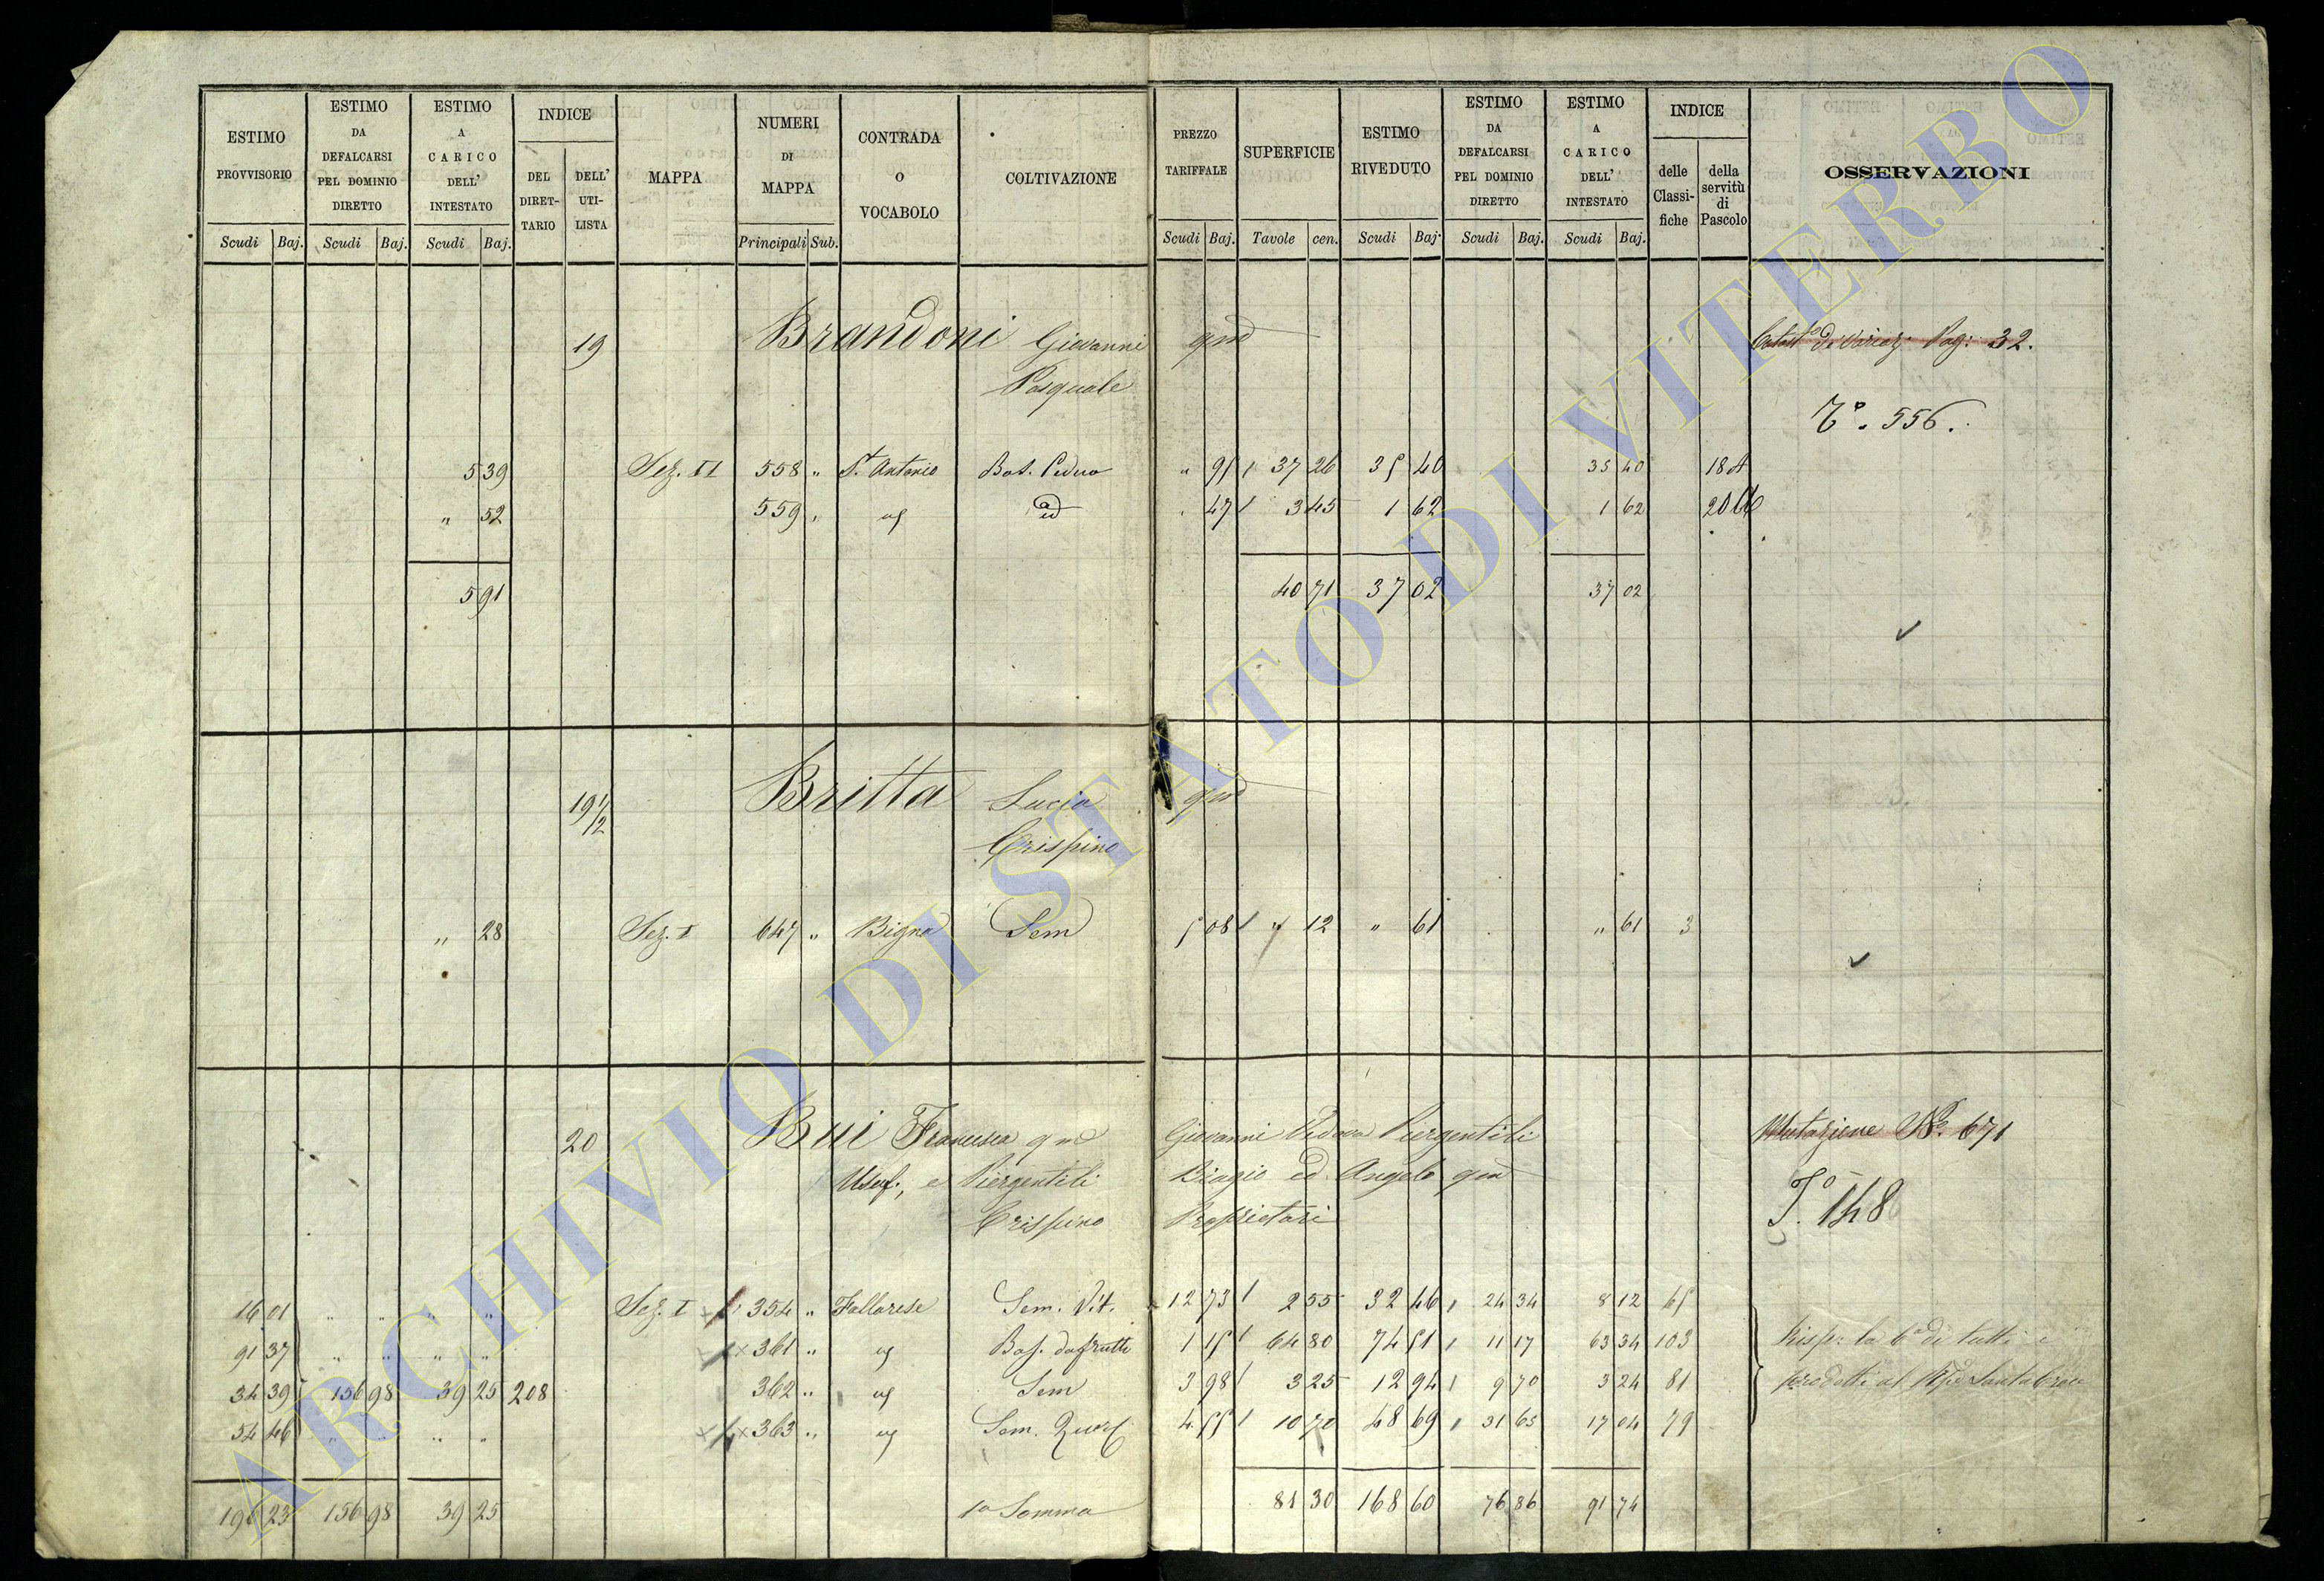 ESTIMO PROVVISORIO Scudi Baj.
ESTIMO DA DEFALCARSI PEL DOMINIO DIRETTO Scudi Baj.
ESTIMO A CARICO DELL' INTESTATO Scudi Baj.
INDICE DEL DIRET- TARIO DELL' UTI- LISTA
MAPPA
NUMERI DI MAPPA Principali Sub.
CONTRADA O VOCABOLO
COLTIVAZIONE
PREZZO TARIFFALE Scudi Baj.
SUPERFICIE Tavole cen.
ESTIMO RIVEDUTO Scudi Baj.
ESTIMO DA DEFALCARSI PEL DOMINIO DIRETTO Scudi Baj.
ESTIMO A CARICO DELL' INTESTATO Scudi Baj.
INDICE delle Classi- fiche della servitù di Pascolo
OSSERVAZIONI
19 Brandoni Giovanni qm Pag: 32.
Pasquale
T.o 556.
5 39 Sez. II 558 " S.t Antonio Bos. Ceduo " 95 37 26 35 40 35 40 18 A
" 52 559 " " 47 3 45 1 62 1 62 20
5 91 40 71 37 02 37 02
19 1/2 Britta Lucia qm
Crispino
" 28 Sez. I 647 " Bigna Sem 5 08 " 12 " 61 " 61 3
20 Bui Francesca qm Giovanni Vedova Piergentili Mutazione N.o 671
Usuf:, e Piergentili Biagio ed Angelo qm
Crispino Proprietari
T.o 148
16 01 " " " " Sez. I 354 " Fallarese Sem. Vit. 12 73 2 55 32 46 24 34 8 12 65
91 37 " " " " 361 " Bos. da frutti 1 15 64 80 74 51 11 17 63 34 103 Risp: la 6a di tutti i
34 39 156 98 39 25 208 362 " Sem 3 98 3 25 12 94 9 70 3 24 81 prodotti al
54 46 " " " " 363 " Sem. 4 55 10 70 48 69 31 65 17 04 79
196 23 156 98 39 25 1a Somma 81 30 168 60 76 86 91 74
ARCHIVIO DI STATO DI VITERBO